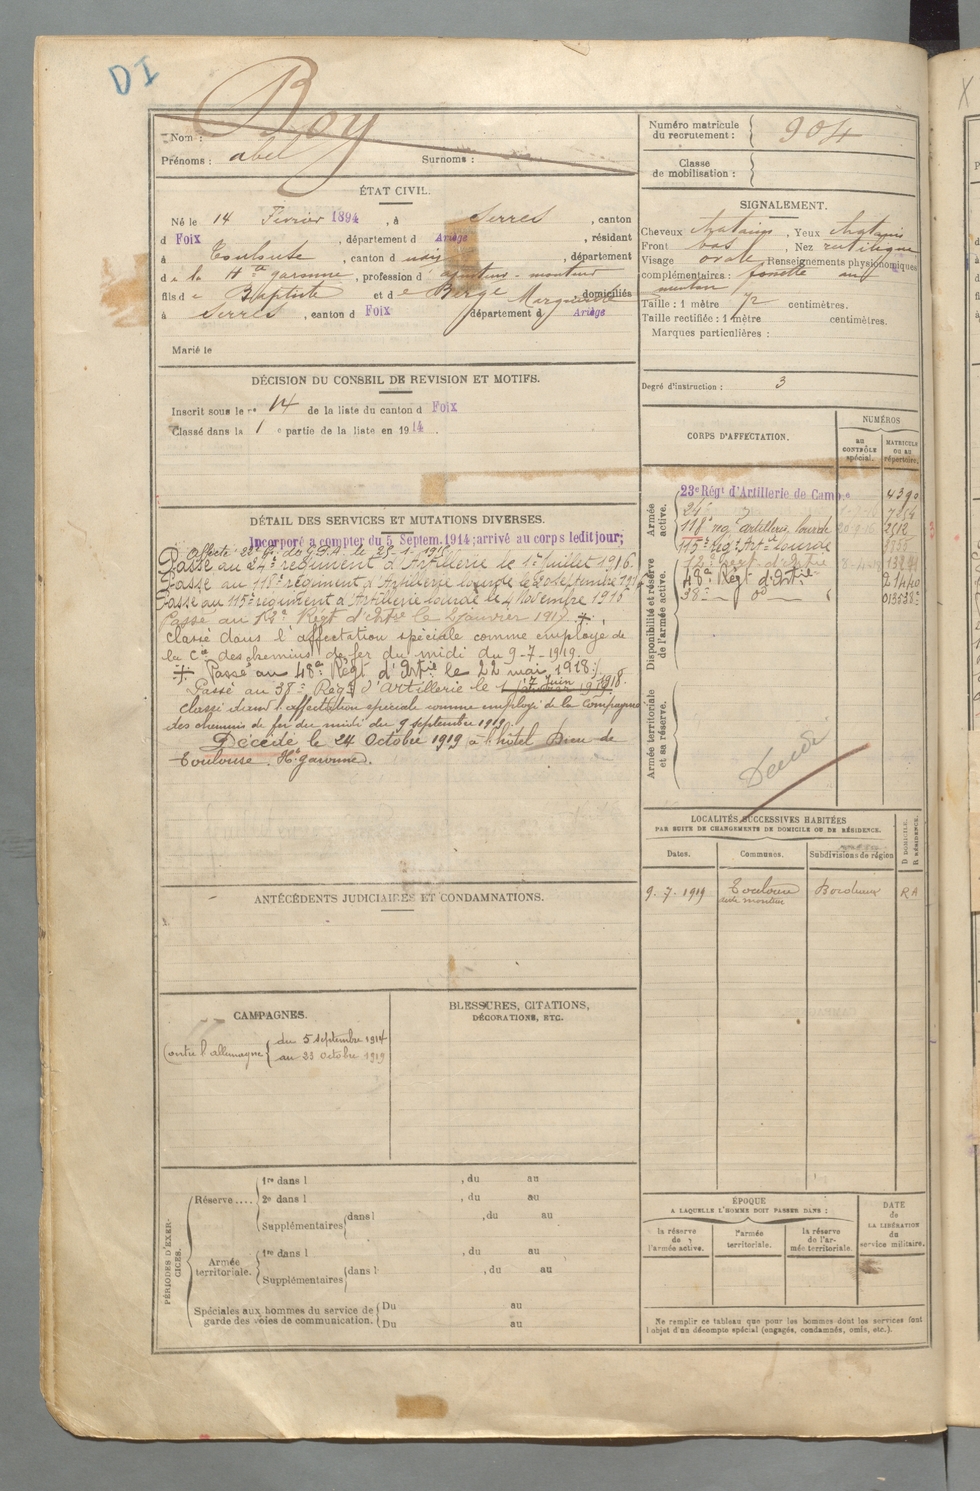 DI
Nom : Boy
Prénoms : abel Surnoms :
Numéro matricule du recrutement : 904
Classe de mobilisation :
ÉTAT CIVIL.
Né le 14 Février 1894, à Serres, canton
d Foix, département d Ariège, résidant
à Toulouse, canton d , département
de la Hte garonne, profession d'ajusteur-monteur
fils de Baptiste et de Berge Marguerite domiciliés
à Serres, canton d Foix département d Ariège
Marié le
SIGNALEMENT.
Cheveux chatains, Yeux chatains
Front bas, Nez rectiligne
Visage ovale Renseignements physionomiques
complémentaires : fossette au
menton
Taille : 1 mètre 72 centimètres.
Taille rectifiée : 1 mètre centimètres.
Marques particulières :
Degré d'instruction : 3
DÉCISION DU CONSEIL DE REVISION ET MOTIFS.
Inscrit sous le no 14 de la liste du canton d Foix
Classé dans la 1 e partie de la liste en 1914.
CORPS D'AFFECTATION.
NUMÉROS
au CONTRÔLE spécial.
MATRICULE OU AU répertoire.
Armée active.
23e Régt d'Artillerie de Camp.e 4390
24e
118e rég artillerie lourde
115e rég Art ie lourde
Disponibilité et réserve de l'armée active.
12e Regt d'Artie
48e Regt d'Artie
38e — do —
Armée territoriale et sa réserve.
Décédé
DÉTAIL DES SERVICES ET MUTATIONS DIVERSES.
Incorporé à compter du 5 Septem. 1914; arrivé au corps ledit jour;
Passé au 24e régiment d'Artillerie le 1er Juillet 1916.
Passé au 118e régiment d'Artillerie lourde le 20 septembre 1916
Passé au 115e régiment d'Artillerie lourde le 4 Novembre 1916
Passé au 12e Régt d'Artie le janvier 1917. +
classé dans l'affectation spéciale comme employé de
la Cie des chemins de fer du midi du 9-7-1919.
+ Passé au 48e Régt d'Artie le 22 mai 1918;
Passé au 38e Régt d'artillerie le 7 Juin 1918.
classé dans l'affectation spéciale comme employé de la Compagnie
des chemins de fer du midi du 9 septembre 1919.
Décédé le 24 Octobre 1919 à l'hôtel Dieu de
Toulouse. Hte garonne.
LOCALITÉS SUCCESSIVES HABITÉES
PAR SUITE DE CHANGEMENTS DE DOMICILE OU DE RÉSIDENCE.
Dates. Communes. Subdivisions de région D DOMICILE. R RÉSIDENCE.
9.7.1919 Toulouse Bordeaux RA
ANTÉCÉDENTS JUDICIAIRES ET CONDAMNATIONS.
CAMPAGNES.
Contre l'allemagne { du 5 septembre 1914
au 23 Octobre 1919
BLESSURES, CITATIONS,
DÉCORATIONS, ETC.
PÉRIODES D'EXERCICES.
Réserve.... 1re dans l , du au
2e dans l , du au
Supplémentaires dans l , du au
Armée territoriale. 1re dans l , du au
Supplémentaires dans l , du au
Spéciales aux hommes du service de garde des voies de communication. Du au
Du au
ÉPOQUE
A LAQUELLE L'HOMME DOIT PASSER DANS :
la réserve de l'armée active.
l'armée territoriale.
la réserve de l'armée territoriale.
DATE de LA LIBÉRATION du service militaire.
Ne remplir ce tableau que pour les hommes dont les services font
l'objet d'un décompte spécial (engagés, condamnés, omis, etc.).